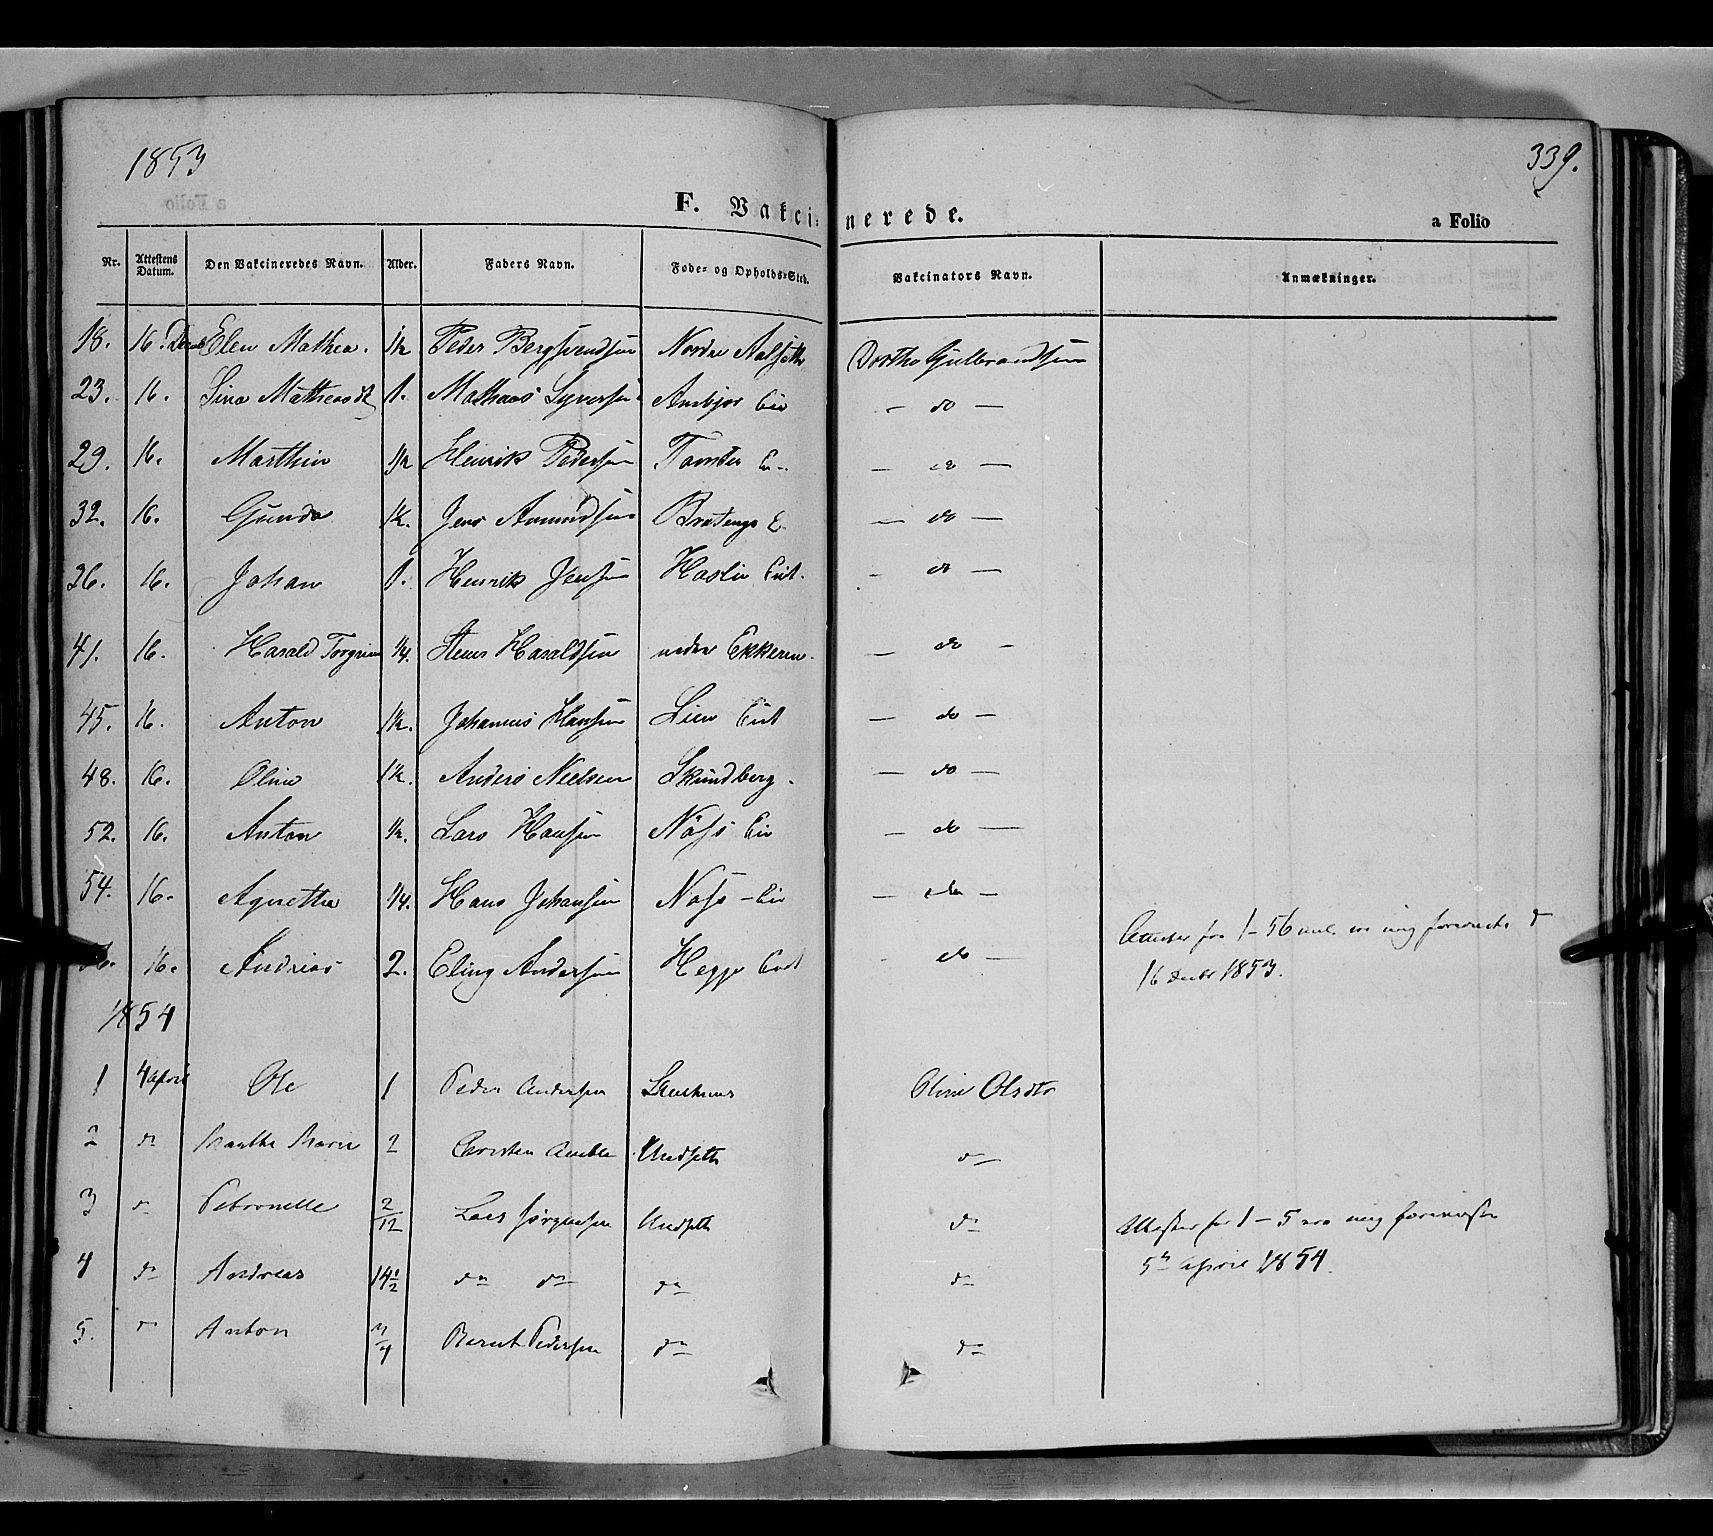 1853
339.
F. Vakcinerede.
a Folio
Nr. Attestens Datum. Den Vakcineredes Navn. Alder. Faders Navn. Føde- og Opholds-Sted. Vakcinators Navn. Anmærkninger.
18. 16. Elen Mathea. 1/2 Peder Bergsvendsen Nordre Aalseth Dorthe Gulbrandsen
23. 16. Lina Matheasdt 1. Matheas Syversen — do —
29. 16. Marthin Henrik Pedersen — do —
32. 16. Gunda 1 1/2. Jens Amundsen Bratengs E. — do —
26. 16. Johan 1. Henrik Jensen Haslie Eiet. — do —
41. 16. Harald Torgrim 1/4. Haraldsen nedre Ekkeren. — do —
45. 16. Anton 1 1/2. Johannes Hansen Lien Eiet — do —
48. 16. Oline 1 1/2. Anders Nielsen Skundberg. — do —
52. 16. Anton 1/2. Lars Hansen Næss Eie — do —
54. 16. Agnethe 1/4. Hans Johansen Næss - Eie — do —
16. Andreas 2. Eling Andersen Hegge Eiet do —
Attester fra 1 - 56 incl. ere mig foreviste d
16 Decbr 1853.
1854
1 4 April Ole 1 Peder Andersen Oline Olsdtr
2 do Marthe Marie 2 Christen Undseth do
3 do Petronelle 2/12 Lars Jørgensen Undseth do
4 do Andreas 14 1/2 do do do do
5. do Anton 3/4 Bernt Pedersen do do
Attester for 1 - 5 ere mig foreviste
5te April 1854.